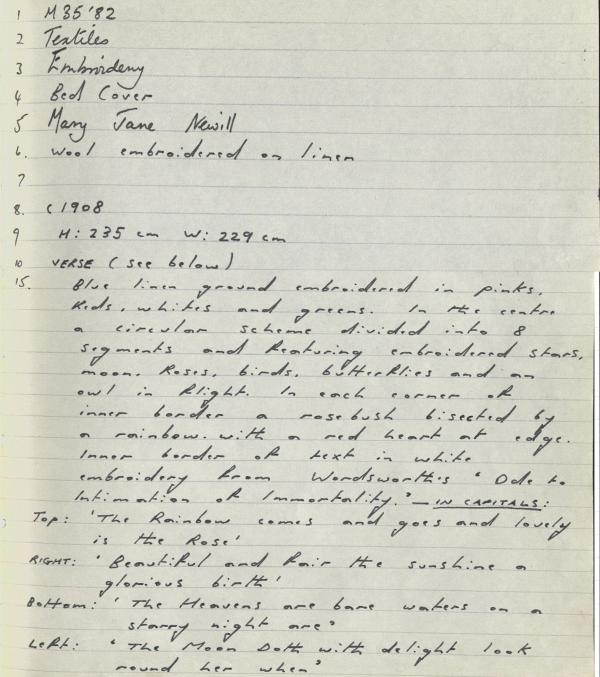 1 M35'82
2 Textiles
3 Embroidery
4 Bed Cover
5 Mary Jane Newill
6. Wool embroidered on linen
7
8. C1908
9 H: 235 cm W: 229 cm
10 VERSE (see below)
15. Blue linen ground embroidered in pinks,
Reds, whites and greens. In the centre
a circular scheme divided into 8
segments and featuring embroidered stars,
moon, Roses, birds, butterflies and an
owl in flight. In each corner of
inner border a rosebush bisected by
a rainbow. with a red heart at edge.
Inner border of text in white
embroidery from Wordsworth's 'Ode to
Intimation of Immortality.' — IN CAPITALS:
Top: 'The Rainbow comes and goes and lovely
is the Rose'
RIGHT: 'Beautiful and fair the sunshine a
glorious birth'
Bottom: 'The Heavens are bare waters on a
starry night are'
Left: 'The Moon Doth with delight look
round her when'